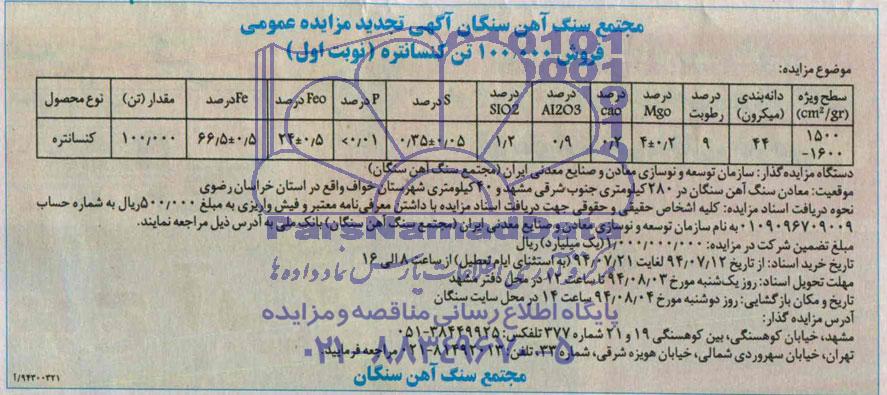 مجتمع سنگ آهن سنگان آگهی تجدید مزایده عمومی
فروش ۱۰۰,۰۰۰ تن کنسانتره (نوبت اول)
موضوع مزایده:
نوع محصول | مقدار (تن) | Fe درصد | Feo درصد | P درصد | S درصد | درصد SIO2 | درصد AI2O3 | درصد cao | درصد Mgo | درصد رطوبت | دانه‌بندی (میکرون) | سطح ویژه (cm²/gr)
کنسانتره | ۱۰۰,۰۰۰ | ۶۶,۵±۰,۵ | ۲۴±۰,۵ | <۰,۰۱ | ۰,۳۵±۰,۰۵ | ۱,۲ | ۰,۹ | ۰,۲ | ۴±۰,۲ | ۹ | ۴۴ | ۱۵۰۰-۱۶۰۰
دستگاه مزایده‌گذار: سازمان توسعه و نوسازی معادن و صنایع معدنی ایران (مجتمع سنگ آهن سنگان)
موقعیت: معادن سنگ آهن سنگان در ۲۸۰ کیلومتری جنوب شرقی مشهد و ۴۰ کیلومتری شهرستان خواف واقع در استان خراسان رضوی
نحوه دریافت اسناد مزایده: کلیه اشخاص حقیقی و حقوقی جهت دریافت اسناد مزایده با داشتن معرفی‌نامه معتبر و فیش واریزی به مبلغ ۵۰۰,۰۰۰ ریال به شماره حساب
۰۱۰۹۰۹۶۷۰۹۰۰۹ به نام سازمان توسعه و نوسازی معادن و صنایع معدنی ایران (مجتمع سنگ آهن سنگان) بانک ملی به آدرس ذیل مراجعه نمایند.
مبلغ تضمین شرکت در مزایده: ۱,۰۰۰,۰۰۰,۰۰۰ (یک میلیارد) ریال
تاریخ خرید اسناد: از تاریخ ۹۴/۰۷/۱۲ لغایت ۹۴/۰۷/۲۱ (به استثنای ایام تعطیل) از ساعت ۸ الی ۱۶
مهلت تحویل اسناد: روز یک‌شنبه مورخ ۹۴/۰۸/۰۳ تا ساعت ۱۲ در محل دفتر مشهد
تاریخ و مکان بازگشایی: روز دوشنبه مورخ ۹۴/۰۸/۰۴ ساعت ۱۴ در محل سایت سنگان
آدرس مزایده گذار:
مشهد، خیابان کوهسنگی، بین کوهسنگی ۱۹ و ۲۱ شماره ۳۷۷ تلفکس: ۳۸۴۴۹۹۲۵-۰۵۱
تهران، خیابان سهروردی شمالی، خیابان هویزه شرقی، شماره ۳۳، تلفن: ۰۲۱ مراجعه فرمایید.
مجتمع سنگ آهن سنگان
۹۴۳۰۰۳۲۱/آ
ParsNamadData
پایگاه اطلاع رسانی مناقصه و مزایده
۰۲۱-۸۸۳۴۹۶۷۰-۵